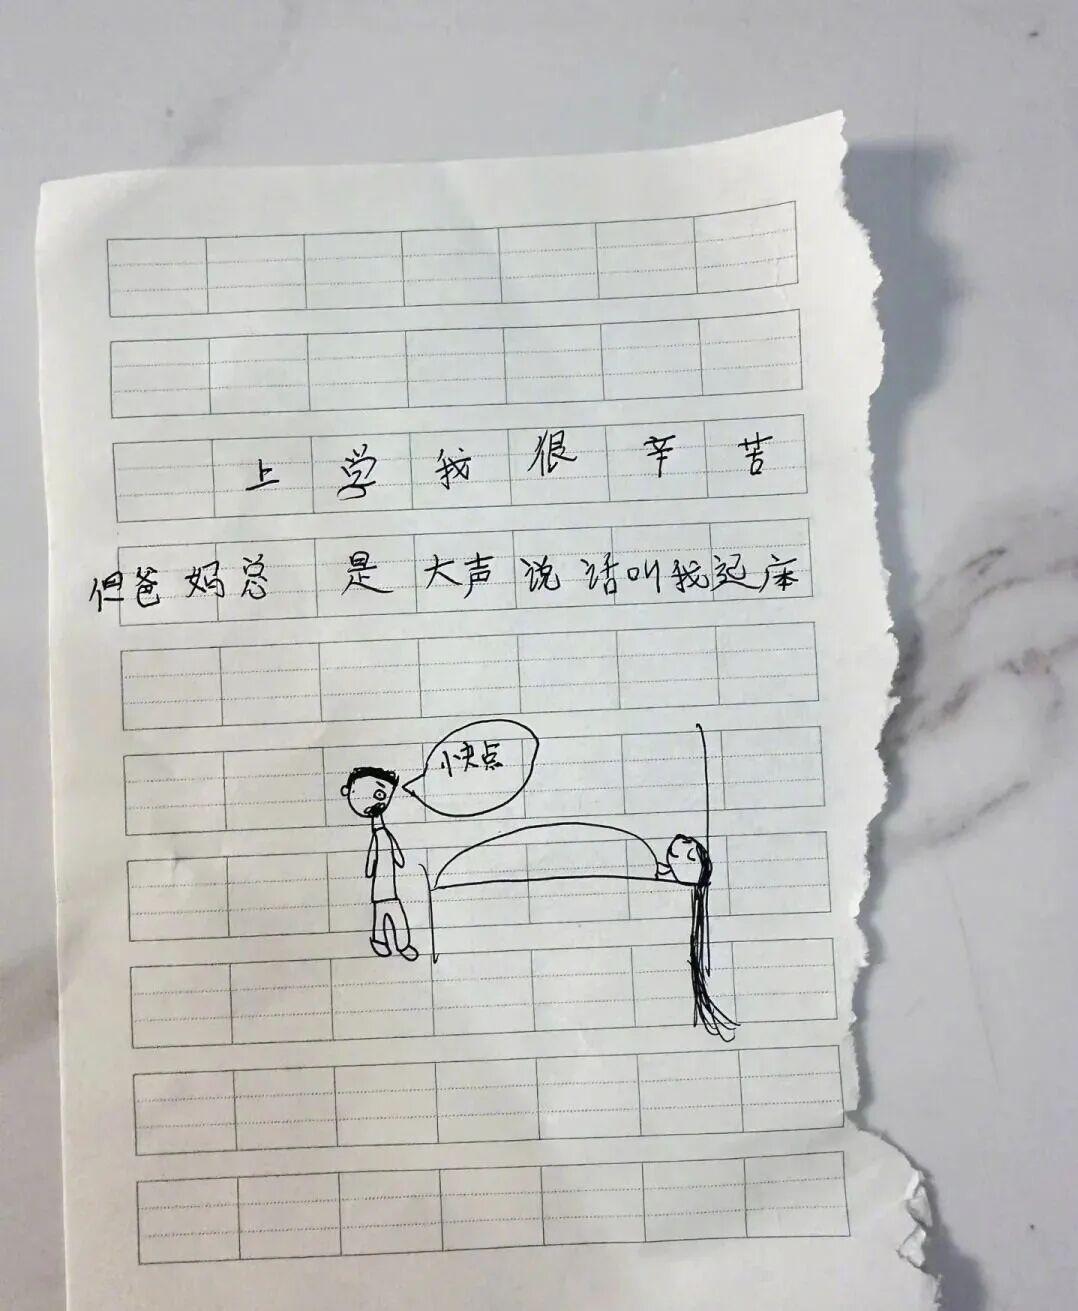 上学我很辛苦
但爸妈总是大声说话叫我起床
快点